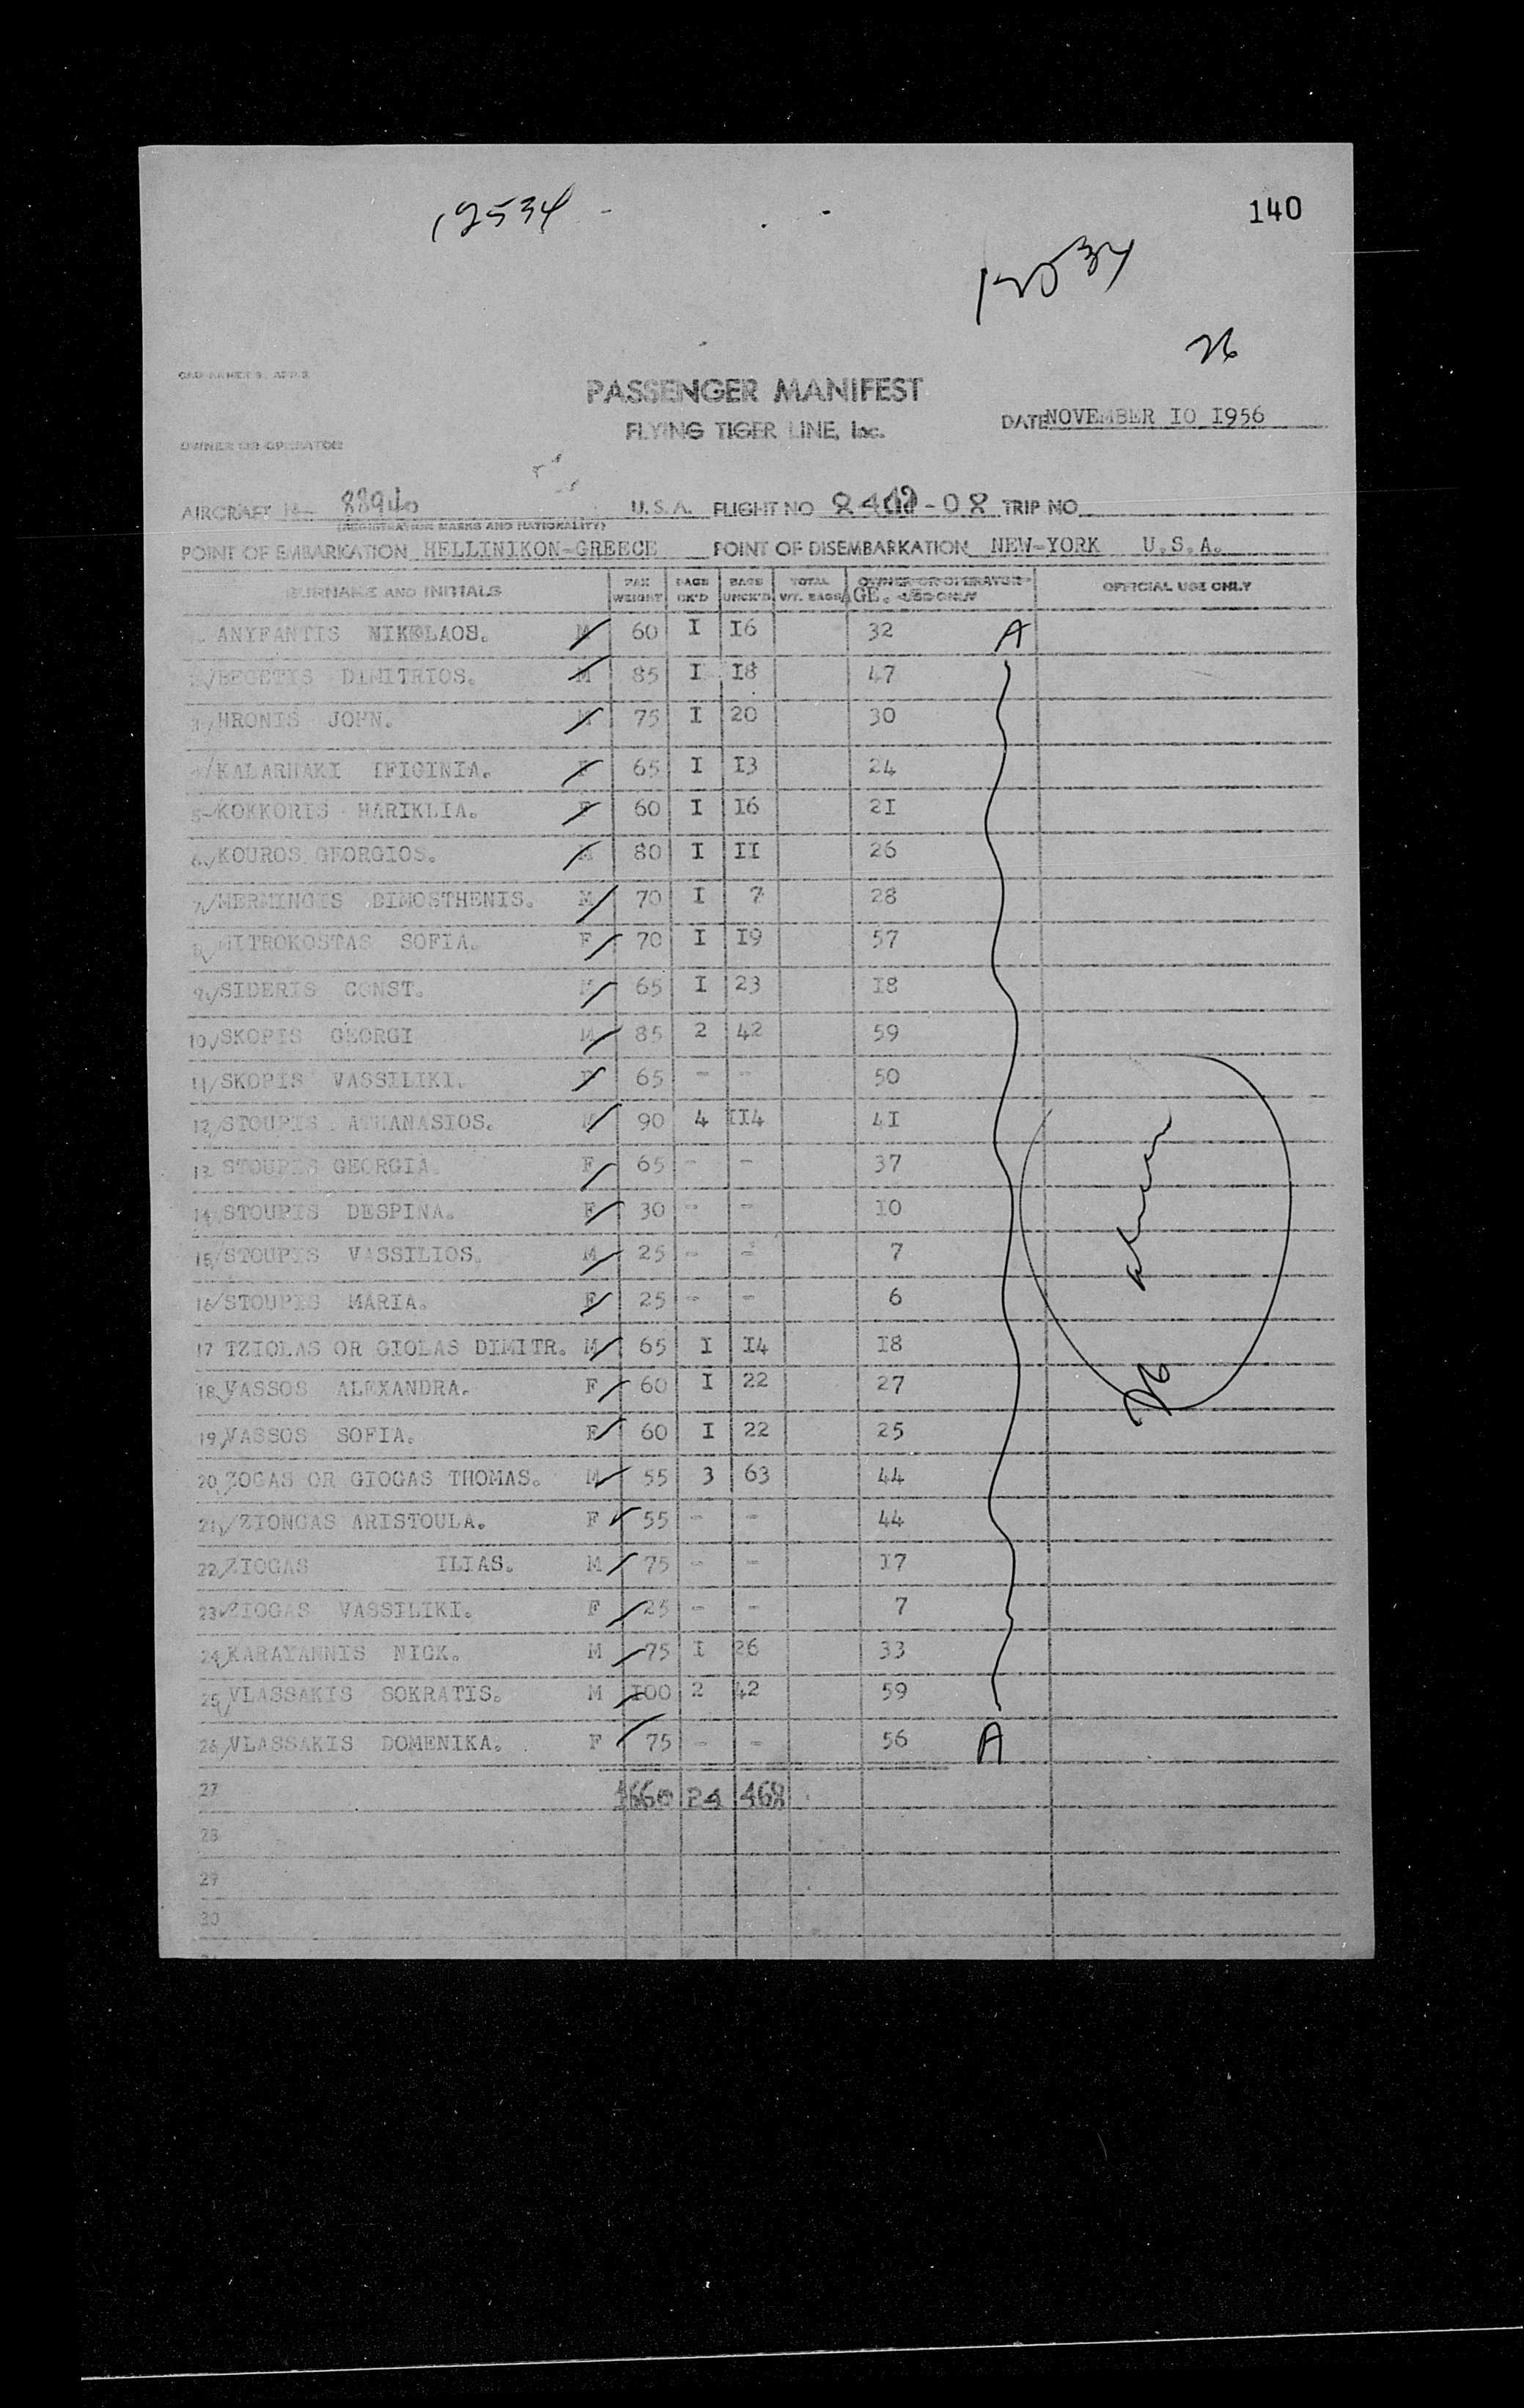 12534
140
12534
26
PASSENGER MANIFEST
FLYING TIGER LINE, Inc.
DATE NOVEMBER IO I956
OWNER OR OPERATOR
AIRCRAFT N- 88940 U.S.A. FLIGHT NO - 08 TRIP NO
(REGISTRATION MARKS AND NATIONALITY)
POINT OF EMBARKATION HELLINIKON-GREECE POINT OF DISEMBARKATION NEW-YORK U.S.A.
SURNAME AND INITIALS PAX WEIGHT BAGS CK'D BAGS UNCK'D TOTAL WT. BAGS OWNER OR OPERATOR AGE. USE ONLY OFFICIAL USE ONLY
ANYFANTIS NIKOLAOS. M 60 I I6 32 A
BEGETIS DIMITRIOS. M 85 I I8 47
3 HRONIS JOHN. M 75 I 20 30
4 KALARHAKI IFIGINIA. F 65 I I3 24
5 KOKKORIS HARIKLIA. F 60 I I6 2I
6 KOUROS GEORGIOS. M 80 I II 26
7 MERMINGIS DIMOSTHENIS. M 70 I 7 28
8 MITROKOSTAS SOFIA. F 70 I I9 57
9 SIDERIS CONST. M 65 I 23 I8
10 SKOPIS GEORGI M 85 2 42 59
11 SKOPIS VASSILIKI. F 65 - - 50
12 STOUPIS ATHANASIOS. M 90 4 II4 4I
13 STOUPIS GEORGIA. F 65 - - 37
14 STOUPIS DESPINA. F 30 - - IO
15 STOUPIS VASSILIOS. M 25 - - 7
16 STOUPIS MARIA. F 25 - - 6
17 TZIOLAS OR GIOLAS DIMITR. M 65 I I4 I8
18 VASSOS ALEXANDRA. F 60 I 22 27
19 VASSOS SOFIA. F 60 I 22 25
20 ZOGAS OR GIOGAS THOMAS. M 55 3 63 44
21 ZIONGAS ARISTOULA. F 55 - - 44
22 ZIOGAS ILIAS. M 75 - - I7
23 ZIOGAS VASSILIKI. F 25 - - 7
24 KARAYANNIS NICK. M 75 I 26 33
25 VLASSAKIS SOKRATIS. M I00 2 42 59
26 VLASSAKIS DOMENIKA. F 75 - - 56 A
26
27 1660 24 468
28
29
30